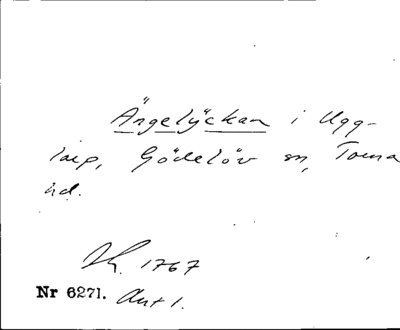 Ängelyckan i Ugg-
larp, Gödelöv sn, Torna
hd.
Sk. 1767
Nr 6271. Akt 1.